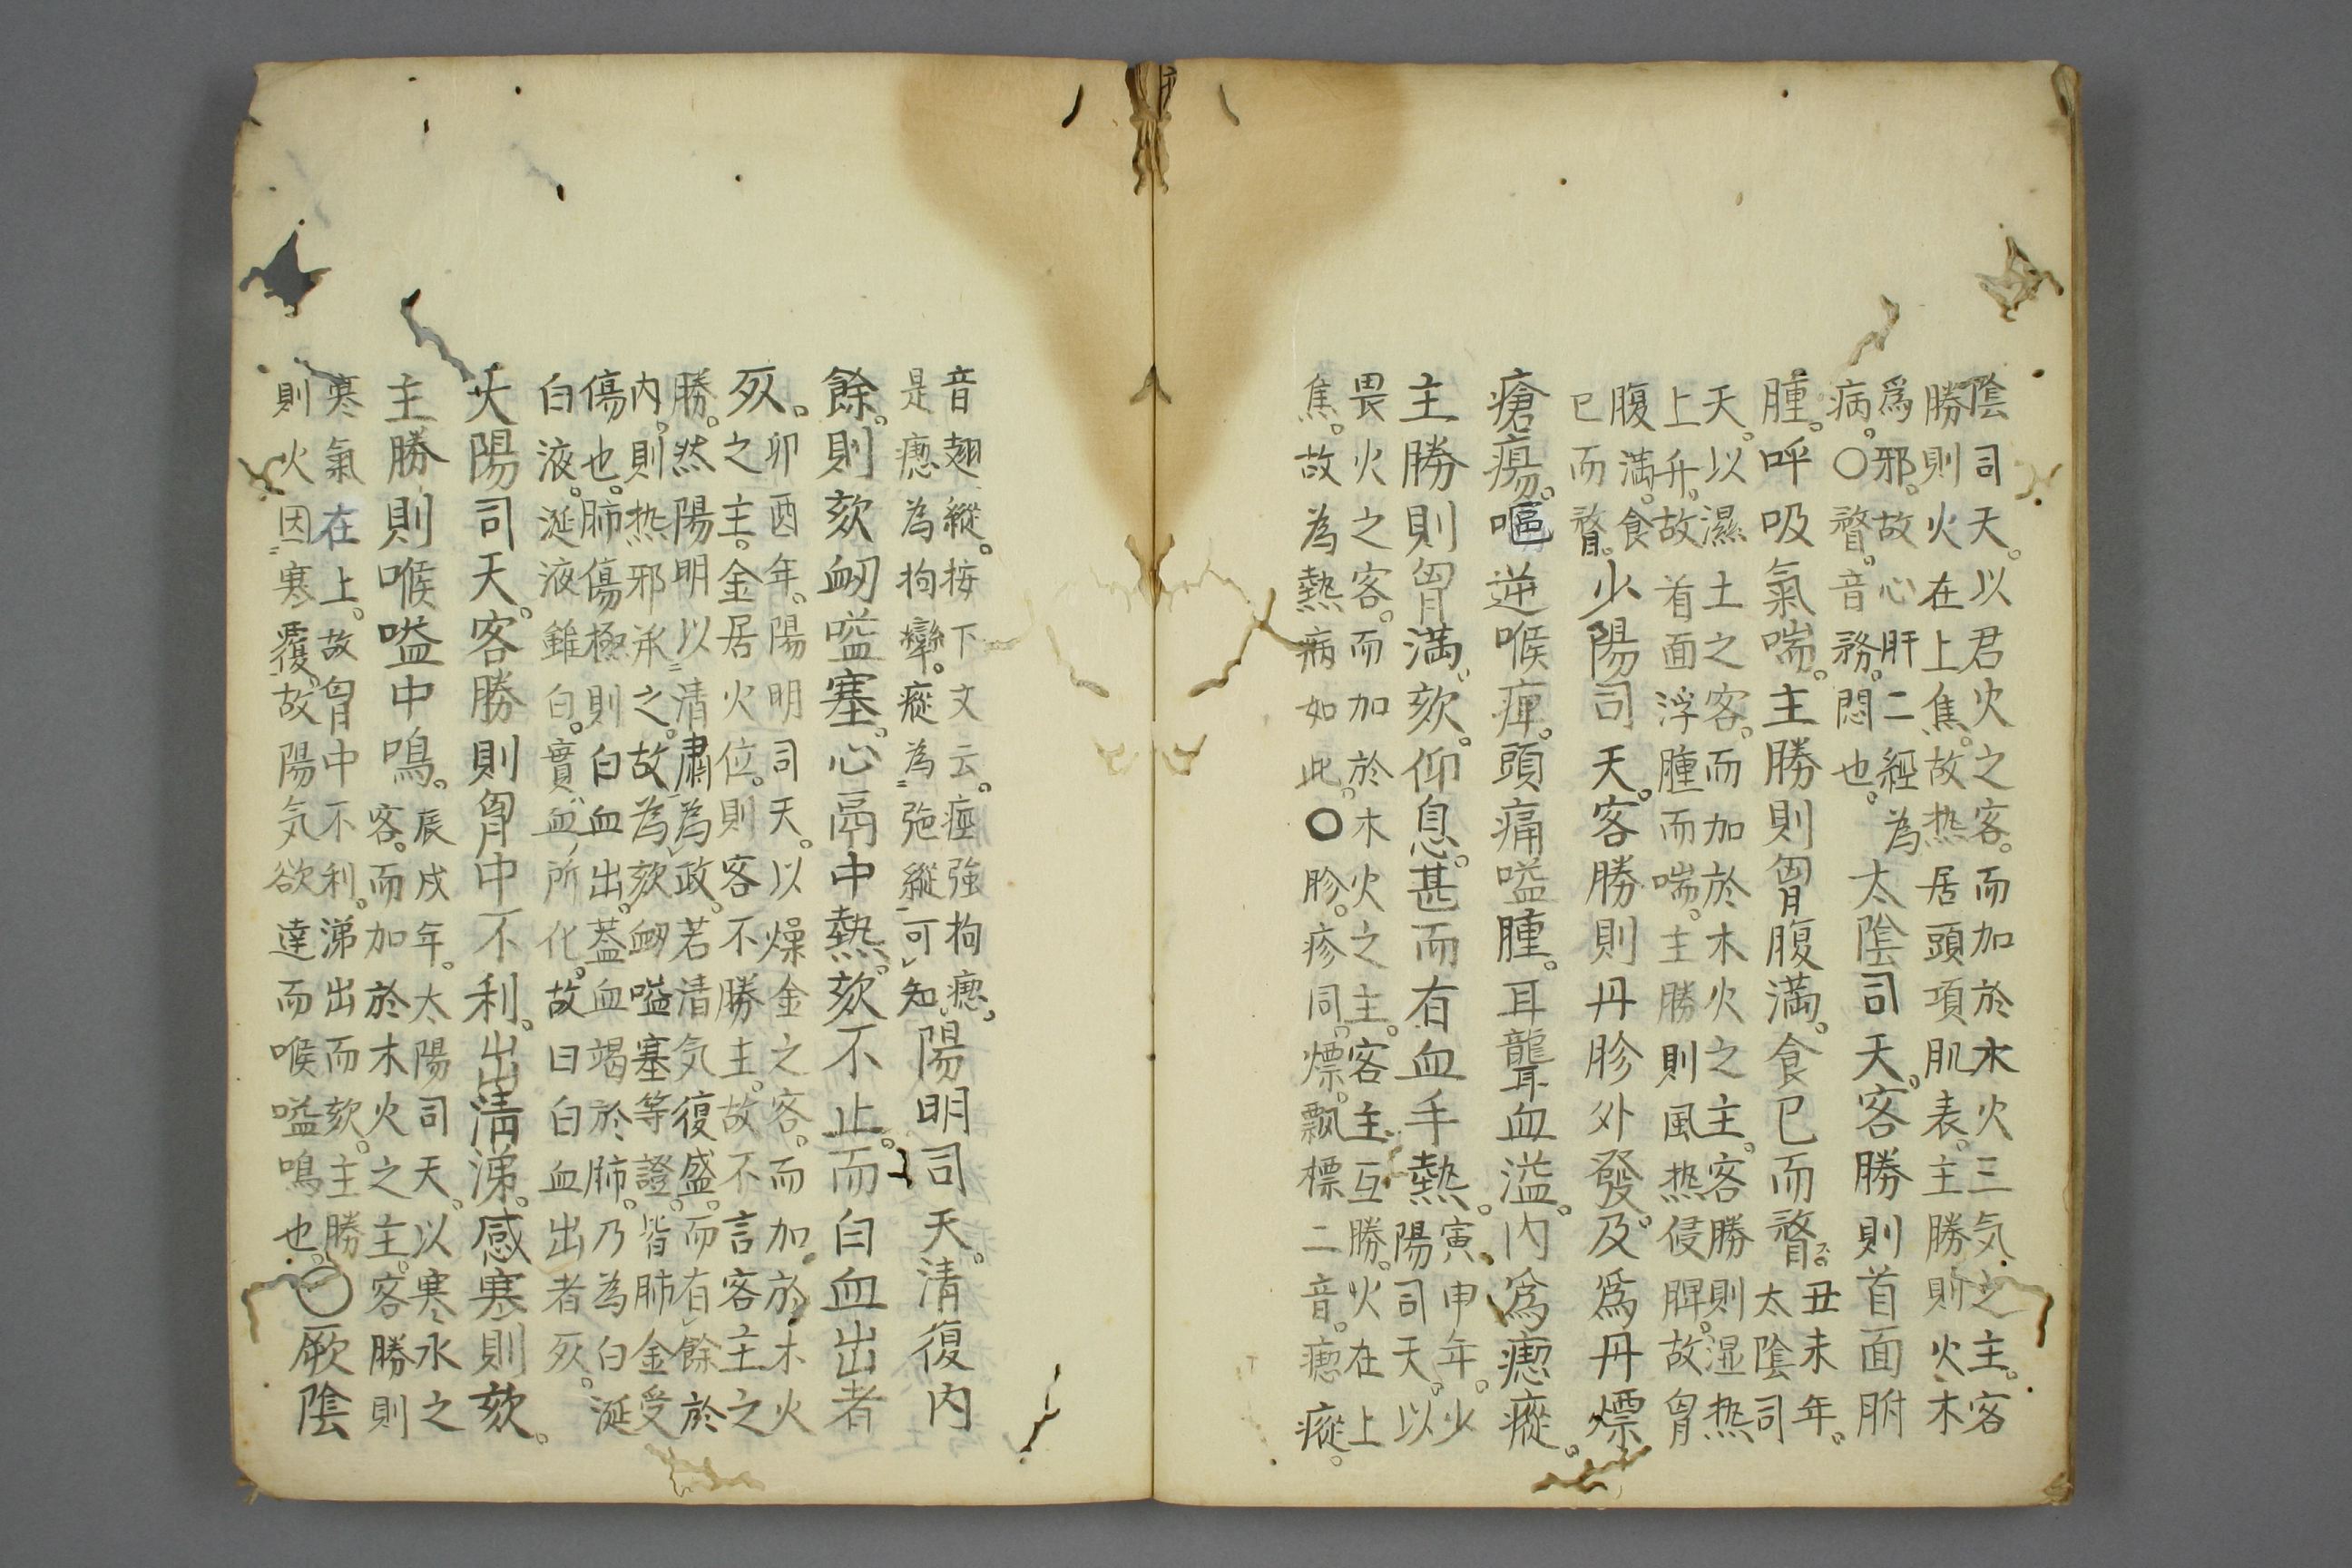 陰司天。以君火之客。而加於木火三気之主。客
勝則火在上焦。故热居頭項肌表。主勝則火木
爲邪。故心肝二經為
病。○瞀。音務。悶也。
太陰司天。客勝則首面胕
腫。呼吸氣喘。主勝則胷腹満。食已而瞀。
丑未年。
太陰司
天。以濕土之客。而加於木火之主。客勝則湿热
上升。故首面浮腫而喘。主勝則風热侵脾。故胷
腹満。食
已而瞀。
少陽司天。客勝則丹胗外發。及爲丹熛
瘡瘍。嘔逆喉痺。頭痛嗌腫。耳聾血溢。内爲瘛瘲。
主勝則胷満。欬。仰息。甚而有血手熱。
寅申年。少
陽司天。以
畏火之客。而加於木火之主。客主互勝。火在上
焦。故為熱病如此。○胗。疹同。熛。飘標二音。瘛瘲。
音翅縱。按下文云。痙強拘瘛。
是瘛為拘攣。瘲為弛縱可知。
陽明司天。清復内
餘。則欬衂嗌塞。心鬲中熱。欬不止。而白血出者
死。
卯酉年。陽明司天。以燥金之客。而加於木火
之主。金居火位。則客不勝主。故不言客主之
勝。然陽明以清肅為政。若清気復盛。而有餘於
内。則热邪承之。故為欬衂嗌塞等證。皆肺金受
傷也。肺傷極則白血出。葢血竭於肺。乃為白涎
白液。涎液雖白。實血所化。故曰白血出者死。
太陽司天。客勝則胷中不利。出清涕。感寒則欬。
主勝則喉嗌中鳴。
辰戌年。太陽司天。以寒水之
客。而加於木火之主。客勝則
寒氣在上。故胷中不利。涕出而欬。主勝
則火因寒覆。故陽気欲達而喉嗌鳴也。
○厥陰